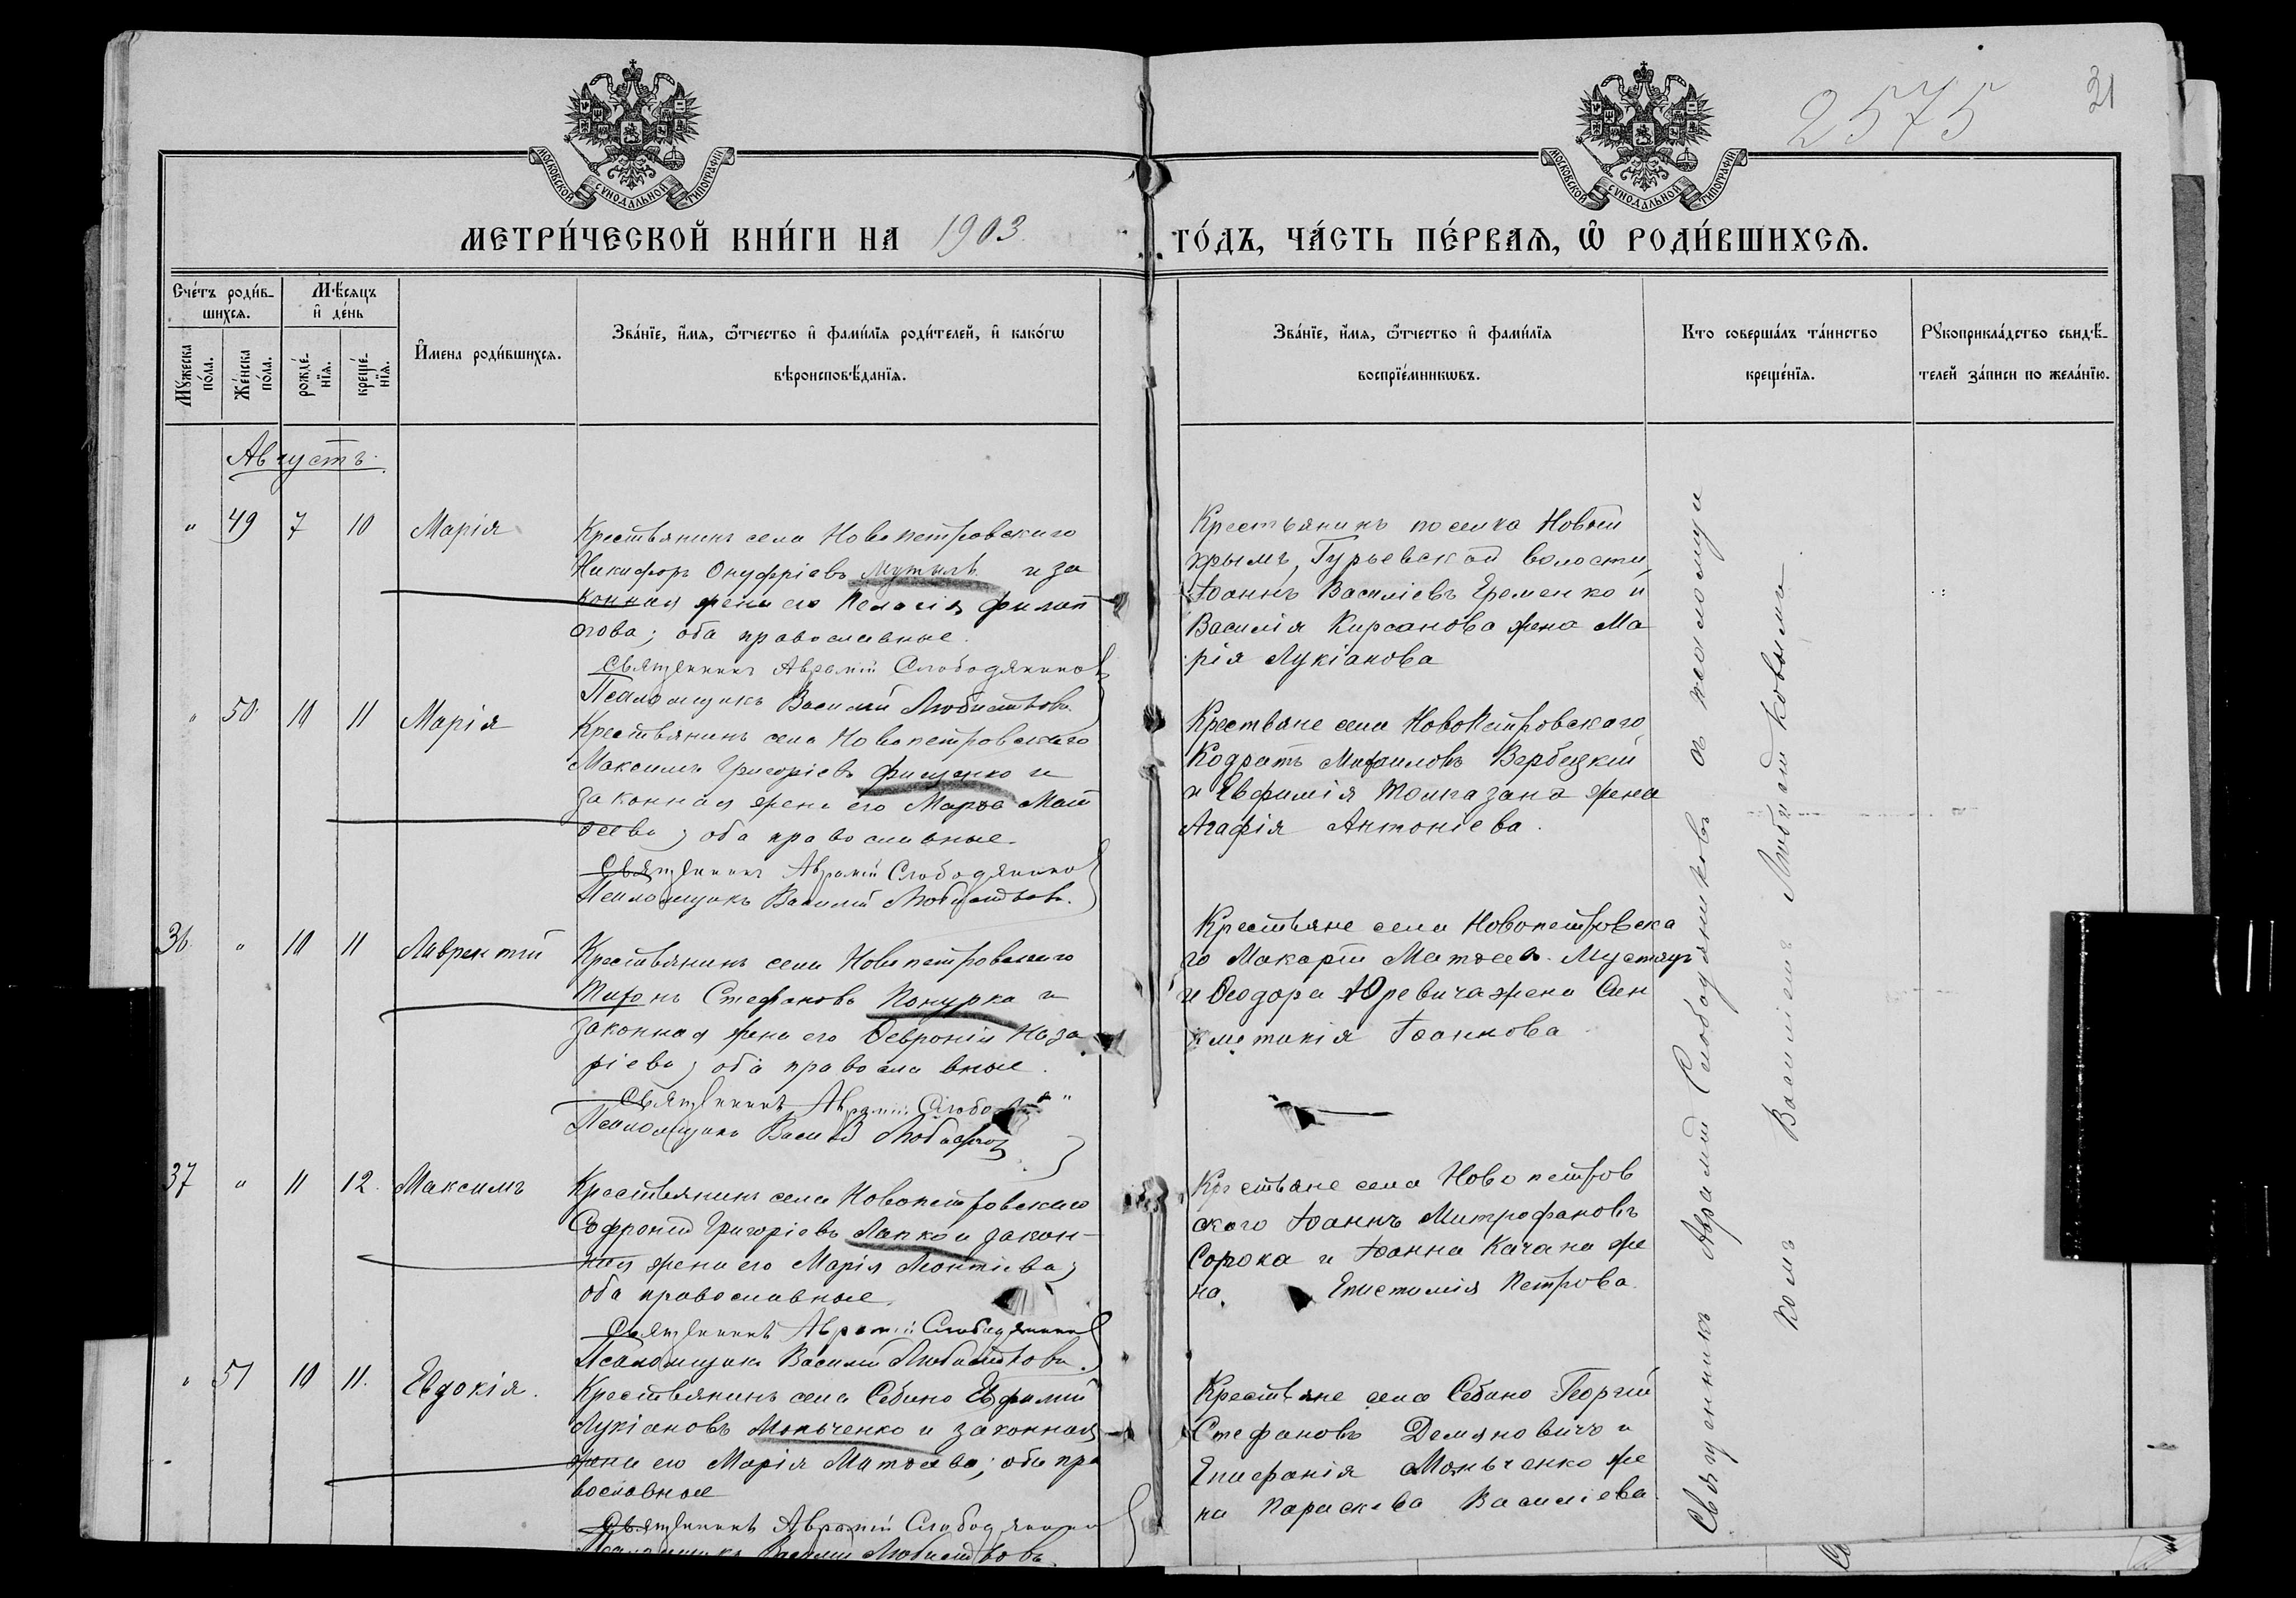 2575
31
МОСКОВСКОЙ СѴНОДАЛЬНОЙ ТИПОГРАФІИ
МОСКОВСКОЙ СѴНОДАЛЬНОЙ ТИПОГРАФІИ
МЕТРИ́ЧЕСКОЙ КНИ́ГИ НА 1903
ГО́ДЪ, ЧА́СТЬ ПЕ́РВАѦ, Ѡ҆ РОДИ́ВШИХСѦ.
Сче́тъ роди́в-
шихсѧ.
Мꙋжеска по́ла.
Же́нска по́ла.
Мѣ́сѧцъ
и҆ де́нь
рожде́-
нїѧ.
креще́-
нїѧ.
И҆мена роди́вшихсѧ.
Зва́нїе, и҆́мѧ, ѻ҆́тчество и҆ фами́лїѧ роди́телей, и҆ како́гѡ
вѣроисповѣ́данїѧ.
Зва́нїе, и҆́мѧ, ѻ҆́тчество и҆ фами́лїѧ
воспрїе́мникѡвъ.
Кто соверша́лъ та́инство
креще́нїѧ.
Рꙋкоприкла́дство свидѣ́-
телей за́писи по жела́нїю.
Августъ.
" 49 7 10 Марія
Крестьянинъ села Новопетровскаго
Никифоръ Онуфріевъ и за
конная жена его Пелагія Филип
пова; оба православные.
Священникъ Аврамій Слободяниковъ
Псаломщикъ Василій Любистковъ.
Крестьянинъ поселка Новый
Крымъ, Гурьевской волости,
Іоаннъ Василіевъ Еременко и
Василія Кирсанова жена Ма
рія Лукіанова
" 50 10 11 Марія
Крестьянинъ села Новопетровскаго
Максимъ Григоріевъ Фищенко и
законная жена его Марѳа Мат
ѳеева; оба православные.
Священникъ Аврамій Слободяниковъ
Псаломщикъ Василій Любистковъ.
Крестьяне села Новопетровскаго,
Кодратъ Михаиловъ Вербецкій
и Евфимія жена
Агафія Антоніева.
36 " 10 11 Лаврентій
Крестьянинъ села Новопетровскаго
Тихонъ Стефановъ Понурка и
законная жена его Ѳевронія Наза
ріева; оба православные.
Священникъ Аврамій
Псаломщикъ Василій
Крестьяне села Новопетровска
го Макарій Матѳеевъ
и Ѳеодора Юревича жена Син
клитикія Іоаннова
37 " 11 12. Максимъ
Крестьянинъ села Новопетровскаго
Софроній Григоріевъ Лапко и закон-
ная жена его Марія Леонтіева;
оба православные.
Священникъ Аврамій Слободяниковъ
Псаломщикъ Василій Любистковъ.
Крестьяне села Новопетров
скаго Іоаннъ Митрофановъ
Сорока и Іоанна Качана же
на Епистимія Петрова.
" 51 10 11. Евдокія.
Крестьянинъ села Себино Евфимій
Лукіановъ и законная
жена его Марія Матѳеева; оба пра
вославные
Священникъ Аврамій Слободяниковъ
Псаломщикъ Василій Любистковъ.
Крестьяне села Себино Георгій
Стефановъ Демяновичъ и
Епифанія же
на Параскева Василіева.
Священникъ Аврамій Слободяниковъ съ псаломщи
комъ Василіемъ Любистковымъ